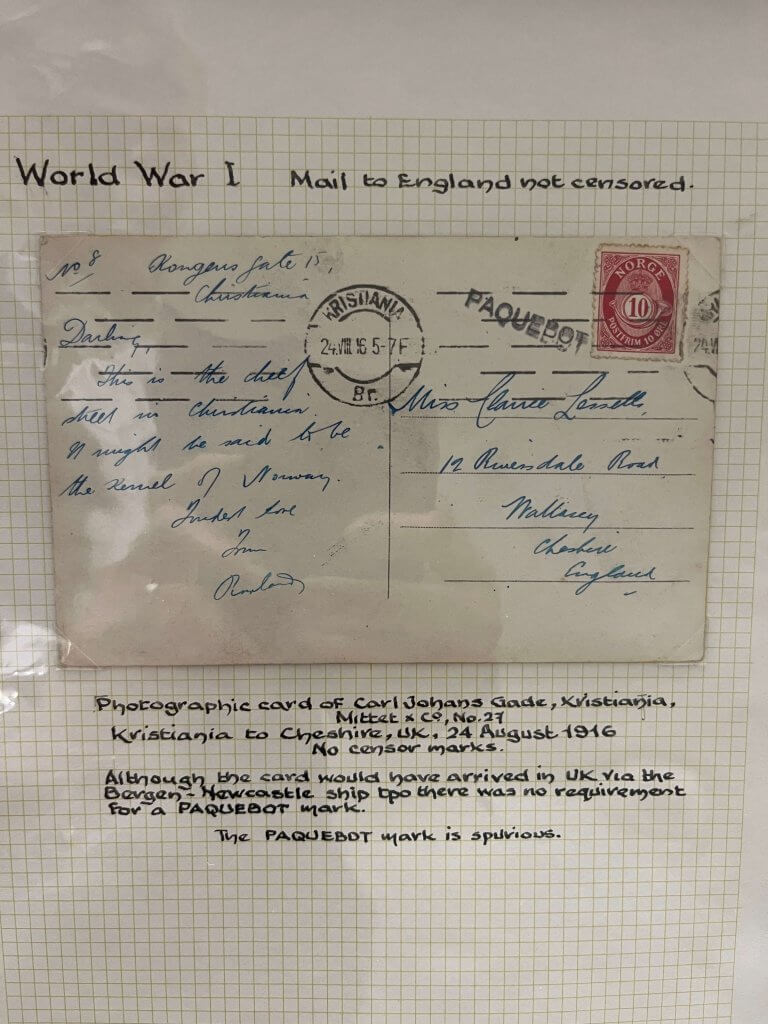 World War I Mail to England not censored.
No 8 Kongens gate 15,
Christiania
Darling,
This is the chief
street in Christiania.
It might be said to be
the kernel of Norway.
Fondest love
from
Rowland
KRISTIANIA
24.VIII.16 5-7 F
Br.
PAQUEBOT
NORGE
10
POSTFRIM 10 ØRE
24.VI
Miss Clarrie Lessells,
12 Riversdale Road
Wallasey
Cheshire
England
Photographic card of Carl Johans Gade, Kristiania,
Mittet & Co, No.27
Kristiania to Cheshire, UK, 24 August 1916
No censor marks.
Although the card would have arrived in UK via the
Bergen - Newcastle ship tpo there was no requirement
for a PAQUEBOT mark.
The PAQUEBOT mark is spurious.